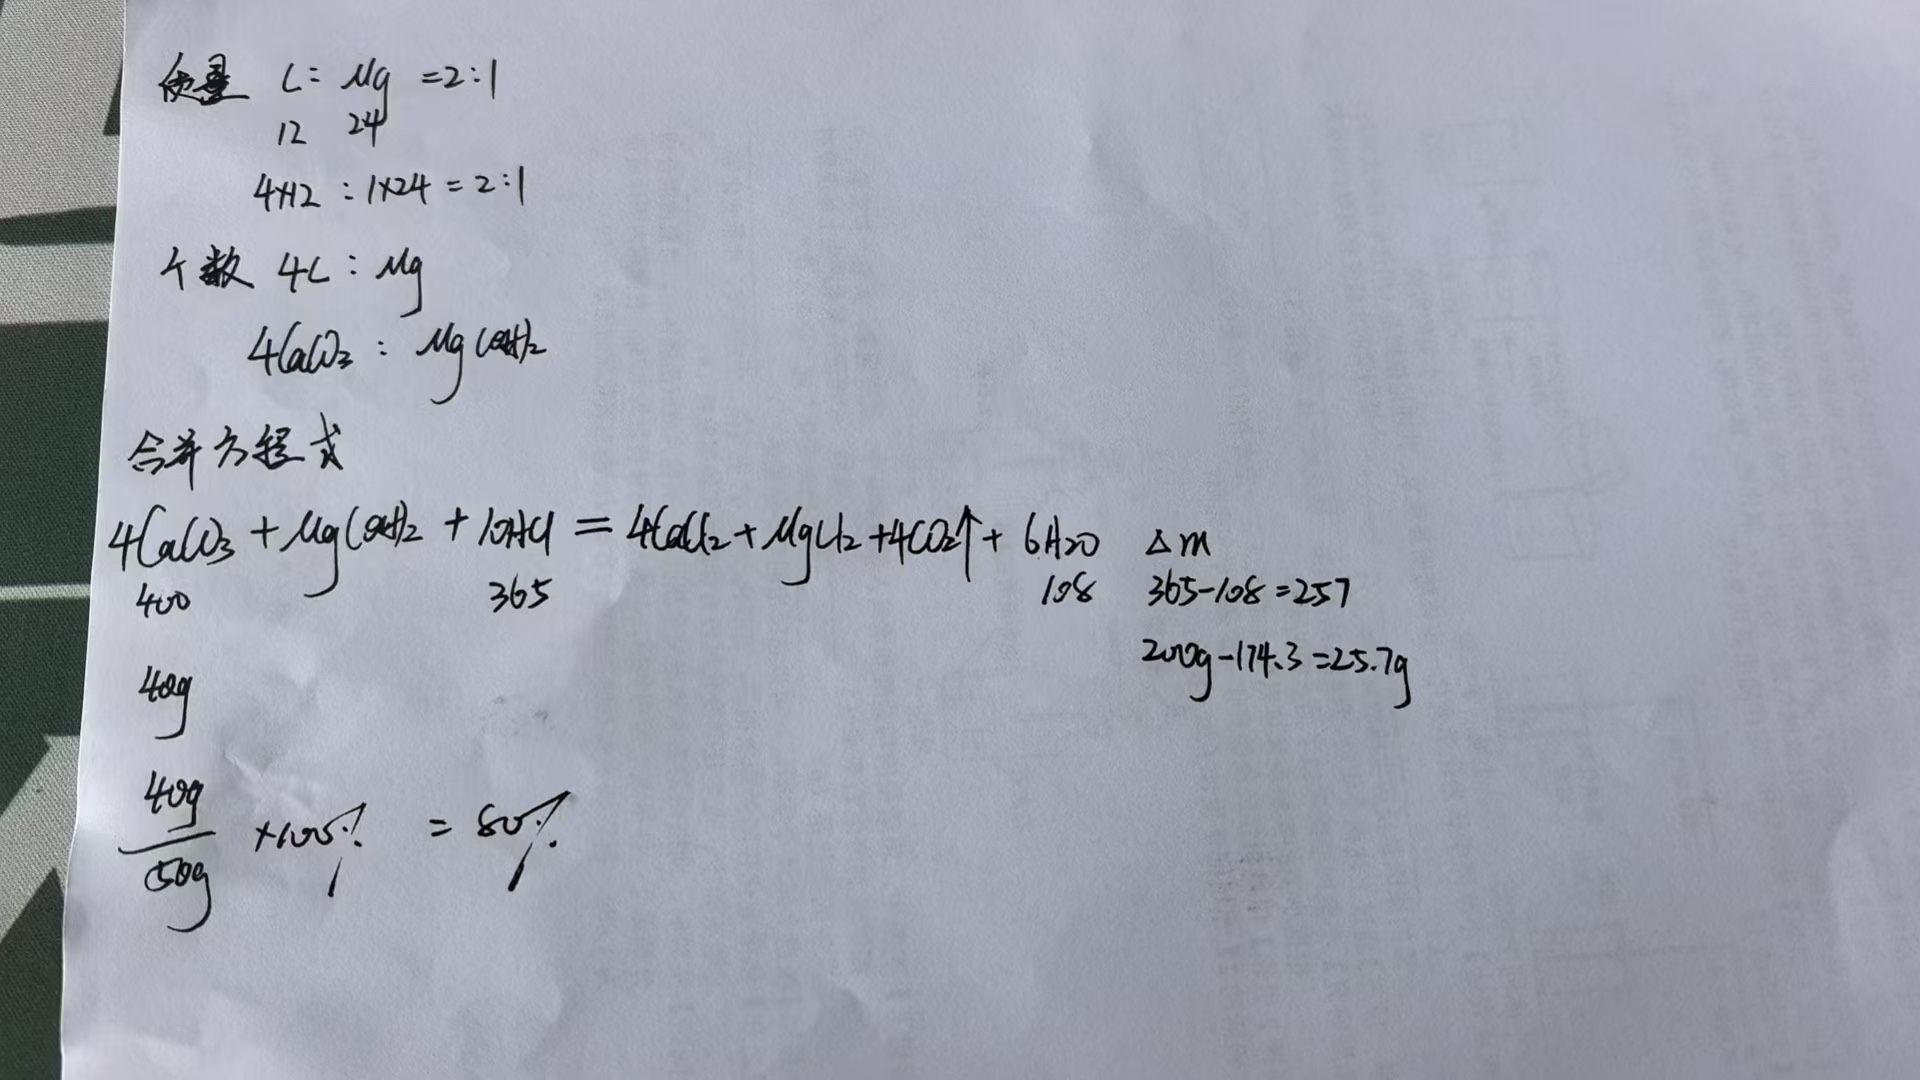 质量 C: Mg =2:1
12 24
4×12 : 1×24 = 2:1
个数 4C : Mg
4CaCO3 : Mg(OH)2
合并方程式
4CaCO3 + Mg(OH)2 + 10HCl = 4CaCl2 + MgCl2 + 4CO2↑ + 6H2O △m
400 365 108 365-108=257
200g-174.3=25.7g
40g
40g
50g ×100% = 80%